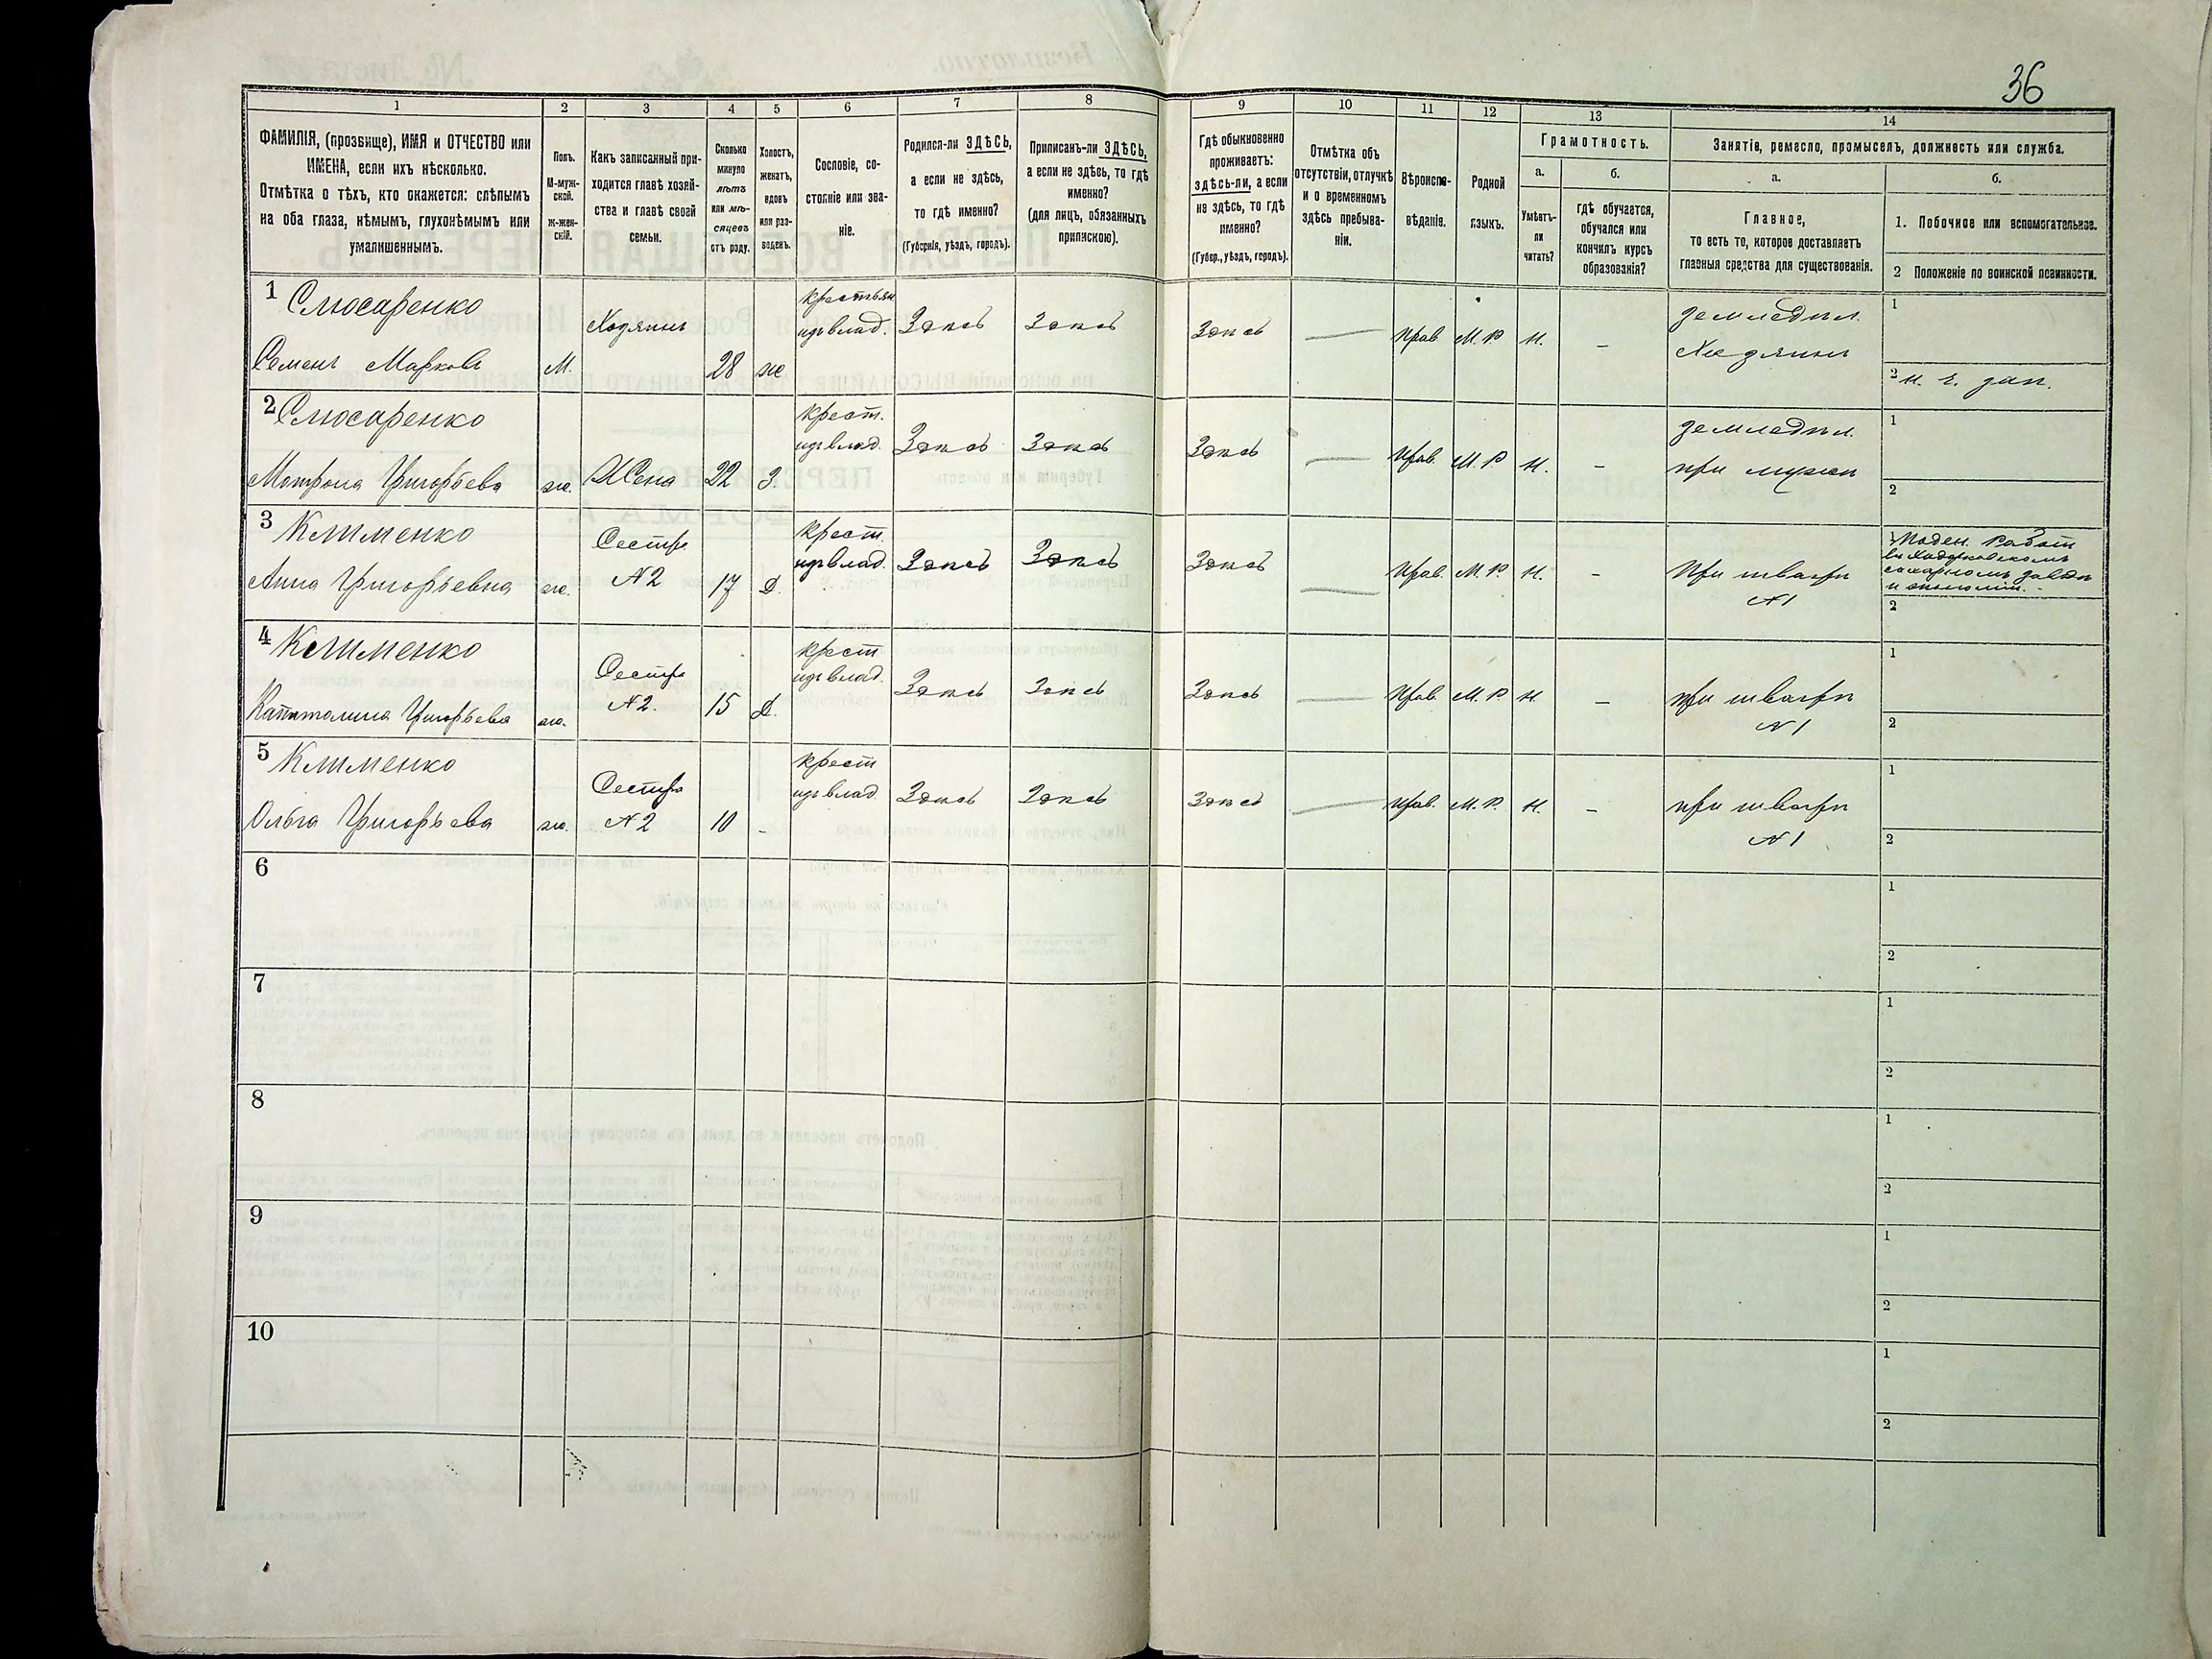 36
1
2
3
4
5
6
7
8
9
10
11
12
13
14
ФАМИЛІЯ, (прозвище), ИМЯ и ОТЧЕСТВО или
ИМЕНА, если ихъ нѣсколько.
Отмѣтка о тѣхъ, кто окажется: слѣпымъ
на оба глаза, нѣмымъ, глухонѣмымъ или
умалишеннымъ.
Полъ.
М-муж-
ской.
Ж-жен-
скій.
Какъ записанный при-
ходится главѣ хозяй-
ства и главѣ своей
семьи.
Сколько
минуло
лѣтъ
или мѣ-
сяцевъ
отъ роду.
Холостъ,
женатъ,
вдовъ
или раз-
веденъ.
Сословіе, со-
стояніе или зва-
ніе.
Родился-ли ЗДѢСЬ,
а если не здѣсь,
то гдѣ именно?
(Губернія, уѣздъ, городъ).
Приписанъ-ли ЗДѢСЬ,
а если не здѣсь, то гдѣ
именно?
(для лицъ, обязанныхъ
припискою).
Гдѣ обыкновенно
проживаетъ:
здѣсь-ли, а если
не здѣсь, то гдѣ
именно?
(Губер., уѣздъ, городъ).
Отмѣтка объ
отсутствіи, отлучкѣ
и о временномъ
здѣсь пребыва-
ніи.
Вѣроиспо-
вѣданіе.
Родной
языкъ.
Грамотность.
а.
Умѣетъ-
ли
читать?
б.
Гдѣ обучается,
обучался или
кончилъ курсъ
образованія?
Занятіе, ремесло, промыселъ, должность или служба.
а.
Главное,
то есть то, которое доставляетъ
главныя средства для существованія.
б.
1. Побочное или вспомогательное.
2 Положеніе по воинской повинности.
1 Слюсаренко
Семенъ Марковъ
М.
Хозяинъ
28
же
крестьян
изъ влад.
Здѣсь
Здѣсь
Здѣсь
—
Прав
М. Р
Н.
–
Земледѣл.
Хозяинъ
1
2 н. г. зап.
2 Слюсаренко
Мотрона Григорьева
ж.
Жена
22
З.
Крест.
изъ влад.
Здѣсь
Здѣсь
Здѣсь
—
Прав.
М. Р
Н.
–
Земледѣл.
при мужѣ
1
2
3 Клименко
Анна Григорьевна
ж.
Сестра
№ 2
17
Д.
Крест.
изъ влад.
Здѣсь
Здѣсь
Здѣсь
—
Прав.
М. Р.
Н.
–
При швагрѣ
№ 1
1 Поден. работ
сахарномъ завод
2
4 Клименко
Капитолина Григорьева
ж.
Сестра
№ 2.
15
Д.
крест
изъ влад.
Здѣсь
Здѣсь
Здѣсь
—
Прав.
М. Р.
Н.
–
при швагрѣ
№ 1
1
2
5 Клименко
Ольга Григорьева
ж.
Сестра
№ 2
10
–
крест
изъ влад.
Здѣсь
Здѣсь
Здѣсь
—
Прав.
М. Р.
Н.
–
при швагрѣ
№ 1
1
2
6
1
2
7
1
2
8
1
2
9
1
2
10
1
2